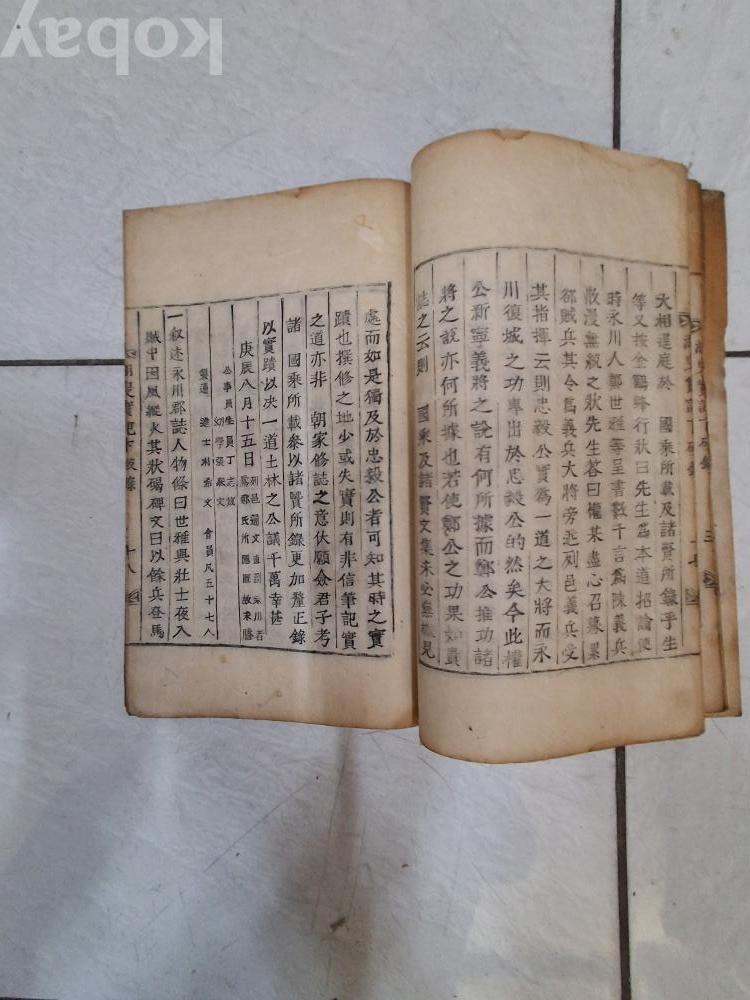 kobay
大相逕庭於 國乘所載及諸賢所錄乎生
等又按金鶴峰行狀曰先生爲本道招諭使
時永川人鄭世雅等呈書數千言爲陳義兵
散漫無統之狀先生答曰權某盡心召募累
郤賊兵其令爲義兵大將旁近列邑義兵受
其指揮云則忠毅公實爲一道之大將而永
川復城之功專出於忠毅公的然矣今此權
公新寧義將之說有何所據而鄭公推功諸
將之說亦何所據也若使鄭公之功果如貴
誌之云則 國乘及諸賢文集未必無概見
處而如是獨及於忠毅公者可知其時之實
蹟也撰修之地少或失實則有非信筆記實
之道亦非 朝家修誌之意伏願僉君子考
諸 國乘所載參以諸賢所錄更加釐正錄
以實蹟以決一道士林之公議千萬幸甚
庚辰八月十五日
公事員生員丁志宬
幼學張 文
製通 進士 文 會員凡五十七人
一叙述永川郡誌人物條曰世雅與壯士夜入
城中因風縱火其狀碣碑文曰以餘兵登馬